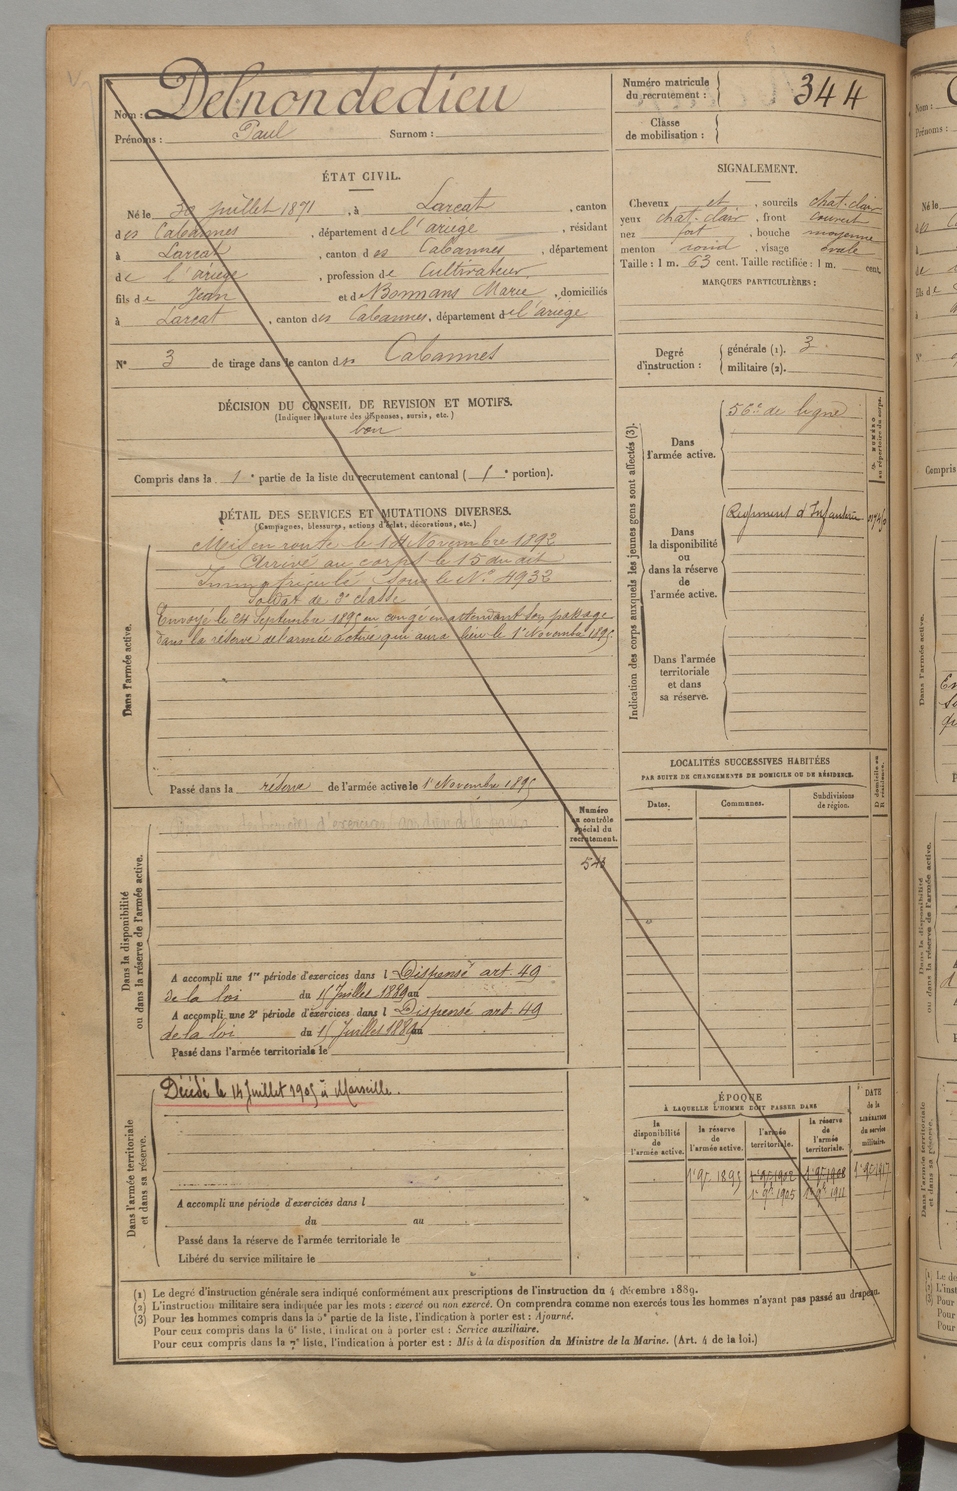 Nom : Delnondedieu
Prénoms : Paul Surnom :
Numéro matricule du recrutement : 344
Classe de mobilisation :
ÉTAT CIVIL.
Né le 30 juillet 1871, à Larcat, canton
des Cabannes, département de l'ariege, résidant
à Larcat, canton des Cabannes, département
de l'ariege, profession de Cultivateur
fils de Jean et de Bonnans Marie, domiciliés
à Larcat, canton des Cabannes, département de l'ariege
N° 3 de tirage dans le canton des Cabannes
SIGNALEMENT.
Cheveux et, sourcils chat. clair
yeux chat. clair, front couvert
nez fort, bouche moyenne
menton rond, visage ovale
Taille : 1 m. 63 cent. Taille rectifiée : 1 m. cent.
MARQUES PARTICULIÈRES :
Degré d'instruction : générale (1). 3
militaire (2).
DÉCISION DU CONSEIL DE REVISION ET MOTIFS.
(Indiquer la nature des dispenses, sursis, etc.)
bon
Compris dans la 1e partie de la liste du recrutement cantonal (1e portion).
DÉTAIL DES SERVICES ET MUTATIONS DIVERSES.
(Campagnes, blessures, actions d'éclat, décorations, etc.)
Dans l'armée active.
Mis en route le 14 Novembre 1892
Arrivé au corps le 15 du dit
Immatriculé sous le N° 4932
Soldat de 2e classe
Envoyé le 24 Septembre 1895 en congé en attendant son passage
dans la réserve de l'armée active qui aura lieu le 1er Novembre 1895
Passé dans la réserve de l'armée active le 1er Novembre 1895
Indication des corps auxquels les jeunes gens sont affectés (3).
Dans l'armée active.
56e de ligne
Dans la disponibilité ou dans la réserve de l'armée active.
Régiment d'Infanterie
Dans l'armée territoriale et dans sa réserve.
NUMÉRO au répertoire du corps.
LOCALITÉS SUCCESSIVES HABITÉES
PAR SUITE DE CHANGEMENTS DE DOMICILE OU DE RÉSIDENCE.
Dates. Communes. Subdivisions de région.
D domicile ou R résidence.
Dans la disponibilité ou dans la réserve de l'armée active.
Numéro au contrôle spécial du recrutement.
A accompli une 1re période d'exercices dans l Dispensé art. 49
de la loi du 15 Juillet 1889 au
A accompli une 2e période d'exercices dans l Dispensé art. 49
de la loi du 15 Juillet 1889 au
Passé dans l'armée territoriale le
Dans l'armée territoriale et dans sa réserve.
Décédé le 14 Juillet 1905 à Marseille.
A accompli une période d'exercices dans l
du au
Passé dans la réserve de l'armée territoriale le
Libéré du service militaire le
ÉPOQUE
À LAQUELLE L'HOMME DOIT PASSER DANS
la disponibilité de l'armée active.
la réserve de l'armée active.
l'armée territoriale.
la réserve de l'armée territoriale.
DATE de la LIBÉRATION du service militaire.
1er 9bre 1895 1er 9bre 1902 1er 9bre 1908 1er 9bre 1917
1er 9bre 1905 1er 9bre 1911
(1) Le degré d'instruction générale sera indiqué conformément aux prescriptions de l'instruction du 4 décembre 1889.
(2) L'instruction militaire sera indiquée par les mots : exercé ou non exercé. On comprendra comme non exercés tous les hommes n'ayant pas passé au drapeau.
(3) Pour les hommes compris dans la 5e partie de la liste, l'indication à porter est : Ajourné.
Pour ceux compris dans la 6e liste, l'indication à porter est : Service auxiliaire.
Pour ceux compris dans la 7e liste, l'indication à porter est : Mis à la disposition du Ministre de la Marine. (Art. 4 de la loi.)